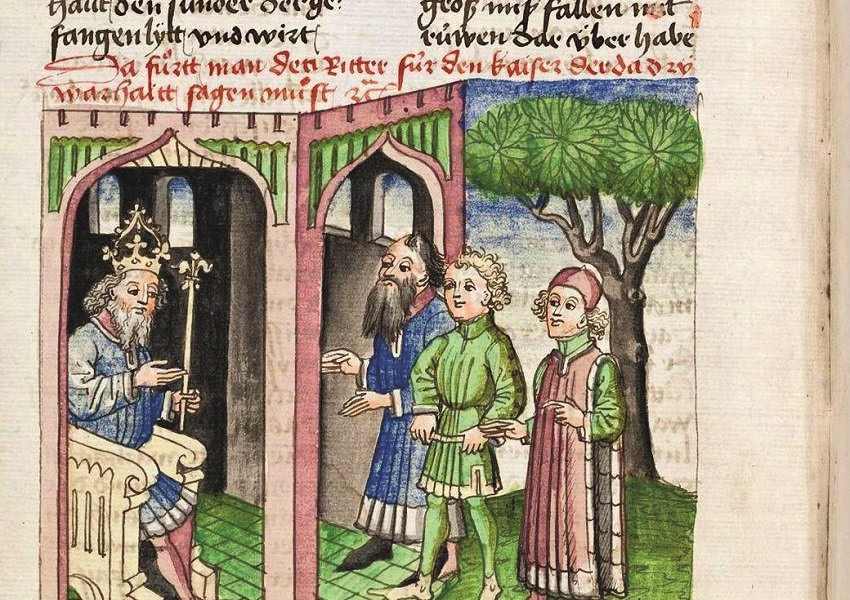 haut den sunder der ge
fangen lytt vnd wirt
groß miß fallen mit
rüwen das über habe
Da fürtt man den Ritter für den kaiser der da dry
warhaitt sagen müst